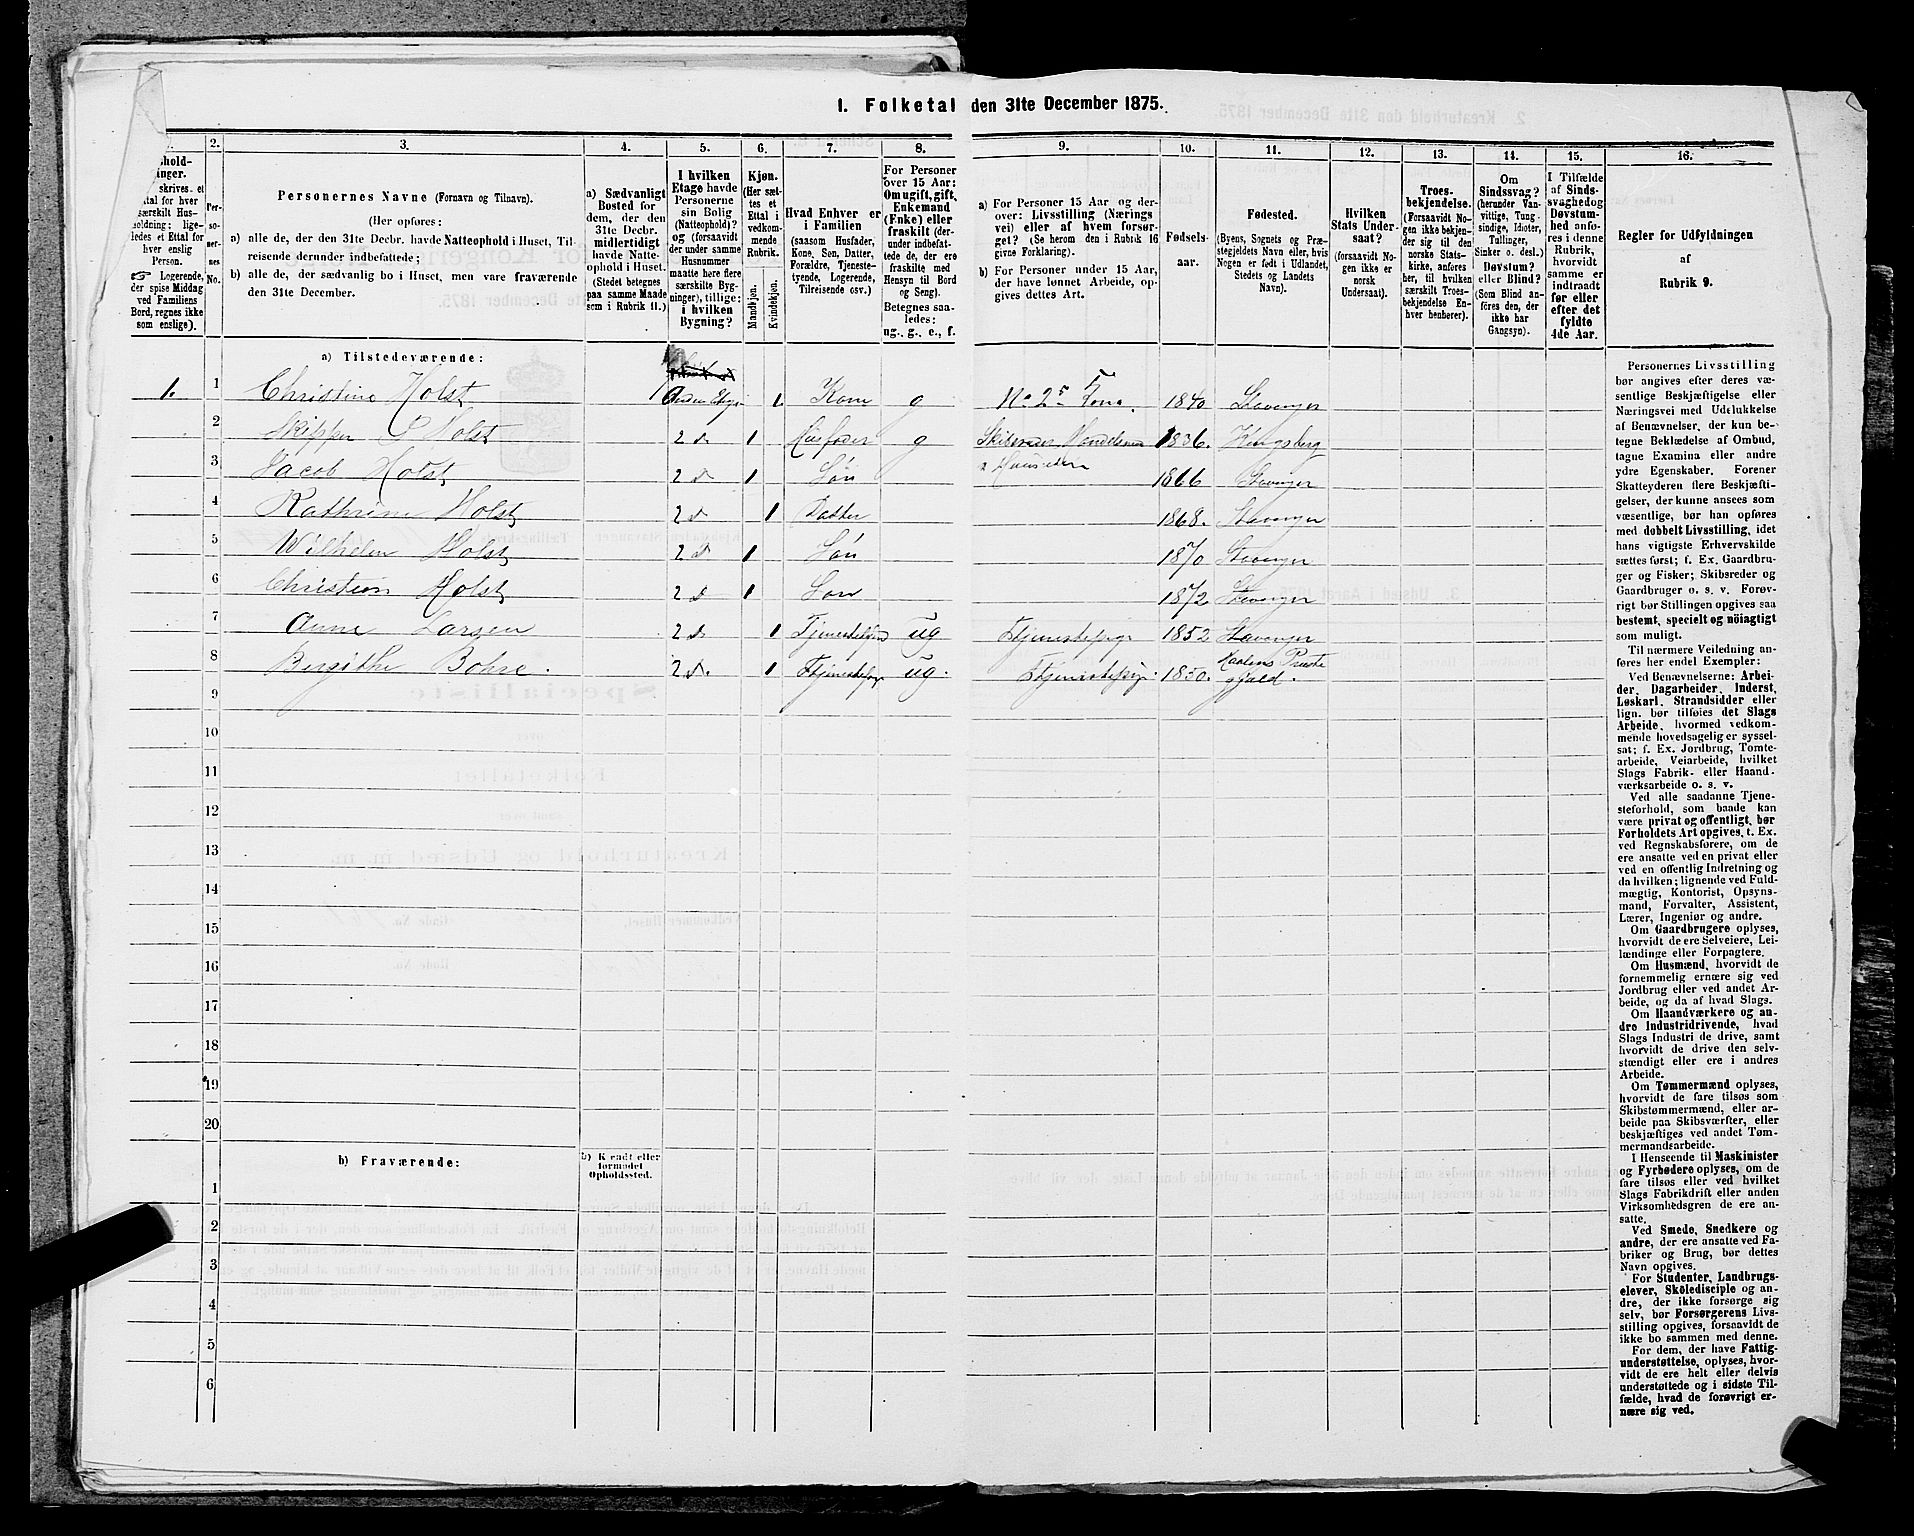 1. Folketal den 31te December 1875.
1.
2.
3.
4.
5.
6.
7.
8.
9.
10.
11.
12.
13.
14.
15.
16.
Personernes Navne (Fornavn og Tilnavn).
(Her opføres:
a) alle de, der den 31te Decbr. havde Natteophold i Huset, Tilreisende derunder indbefattede;
b) alle de, der sædvanlig bo i Huset, men vare fraværende den 31te December.
☞ Logerende, der spise Middag ved Familiens Bord, regnes ikke som enslige).
Personernes No.
a) Sædvanligt Bosted for dem, der den 31te Decbr. midlertidigt havde Natteophold i Huset. (Stedet betegnes paa samme Maade som i Rubrik 11.)
I hvilken Etage havde Personerne sin Bolig (Natteophold)? og (forsaavidt der under samme Husnummer maatte høre flere særskilte Bygninger), tillige: i hvilken Bygning?
Kjøn.
(Her sættes et Ettal i vedkommende Rubrik.
Mandkjøn.
Kvindekjøn.
Hvad Enhver er i Familien
(saasom Husfader, Kone, Søn, Datter, Forældre, Tjenestetyende, Logerende, Tilreisende osv.)
For Personer over 15 Aar: Om ugift, gift, Enkemand (Enke) eller fraskilt (derunder indbefattede de, der ere fraskilte med Hensyn til Bord og Seng).
Betegnes saaledes: ug., g., e., f.
a) For Personer 15 Aar og derover: Livsstilling (Næringsvei) eller af hvem forsørget? (Se herom den i Rubrik 16 givne Forklaring).
b) For Personer under 15 Aar, der have lønnet Arbeide, opgives dettes Art.
Fødselsaar.
Fødested.
(Byens, Sognets og Præstegjeldets Navn eller, hvis Nogen er født i Udlandet, Stedets og Landets Navn).
Hvilken Stats Undersaat?
(forsaavidt Nogen ikke er norsk Undersaat).
Troesbekjendelse.
(Forsaavidt Nogen ikke bekjender sig til den norske Statskirke, anføres her, til hvilken særskilt Troesbekjendelse Enhver henhører).
Om Sindssvag? (herunder Vanvittige, Tungsindige, Idioter, Tullinger, Sinker o. desl.) Døvstum? eller Blind?
(Som Blind anføres den, der ikke har Gangsyn).
I Tilfælde af Sindssvaghed og Døvstumhed anføres i denne Rubrik, hvorvidt samme er indtraadt før eller efter det fyldte 4de Aar.
Regler for Udfyldningen
af
Rubrik 9.
a) Tilstedeværende:
1. 1 Christine Holst Anden Etage 1. Kone g 1840 Stavanger
2 Skipper P Holst 2 d 1 Husfader g 1836. Kongsberg
3 Jacob Holst 2 d 1 Søn 1866 Stavanger
4 Kathrine Holst 2 d 1 Datter 1868. Stavanger
5 Wilhelm Holst 2 d 1 Søn 1870 Stavanger
6 Christian Holst 2 d 1 Søn 1872 Stavanger
7 Anne Larsen 2 d. 1 ug Tjenestepige 1852 Stavanger
8 Birgithe Bohre. 2 d. 1 Tjenestepige ug. Tjenestepige. 1850.
gjeld.
9
10
11
12
13
14
15
16
17
18
19
20
b) Fraværende:
b) Kjendt eller formodet Opholdssted.
1
2
3
4
5
6
Personernes Livsstilling bør angives efter deres væsentlige Beskjæftigelse eller Næringsvei med Udelukkelse af Benævnelser, der kun betegne Beklædelse af Ombud, tagne Examina eller andre ydre Egenskaber. Forener Skatteyderen flere Beskjæftigelser, der kunne ansees som væsentlige, bør han opføres med dobbelt Livsstilling, idet hans vigtigste Erhvervskilde sættes først; f. Ex. Gaardbruger og Fisker; Skibsreder og Gaardbruger o. s. v. Forøvrigt bør Stillingen opgives saa bestemt, specielt og nøiagtigt som muligt.
Til nærmere Veiledning anføres her endel Exempler:
Ved Benævnelserne: Arbeider, Dagarbeider, Inderst, Løskarl, Strandsidder eller lign. bør tilføies det Slags Arbeide, hvormed vedkommende hovedsagelig er sysselsat; f. Ex. Jordbrug, Tomtearbeide, Veiarbeide, hvilket Slags Fabrik- eller Haandværksarbeide o. s. v.
Ved alle saadanne Tjenesteforhold, som baade kan være privat og offentligt, bør Forholdets Art opgives, t. Ex. ved Regnskabsførere, om de ere ansatte ved en privat eller ved en offentlig Indretning og da hvilken; lignende ved Fuldmægtig, Kontorist, Opsynsmand, Forvalter, Assistent, Lærer, Ingeniør og andre.
Om Gaardbrugere oplyses, hvorvidt de ere Selveiere, Leilændinge eller Forpagtere.
Om Husmænd, hvorvidt de fornemmelig ernære sig ved Jordbrug eller ved andet Arbeide, og da af hvad Slags.
Om Haandværkere og andre Industridrivende, hvad Slags Industri de drive, samt hvorvidt de drive den selvstændigt eller ere i andres Arbeide.
Om Tømmermænd oplyses, hvorvidt de fare tilsøs som Skibstømmermænd, eller arbeide paa Skibsværfter, eller beskjæftiges ved andet Tømmermandsarbeide.
I Henseende til Maskinister og Fyrbødere oplyses, om de fare tilsøs eller ved hvilket Slags Fabrikdrift eller anden Virksomhedsgren de ere ansatte.
Ved Smede, Snedkere og andre, der ere ansatte ved Fabriker og Brug, bør dettes Navn opgives.
For Studenter, Landbrugselever, Skoledisciple og andre, der ikke forsørge sig selv, bør Forsørgerens Livsstilling opgives, forsaavidt de ikke bo sammen med denne.
For dem, der have Fattigunderstøttelse, oplyses, hvorvidt de ere helt eller delvis understøttede og i sidste Tilfælde, hvad de forøvrigt ernære sig ved.